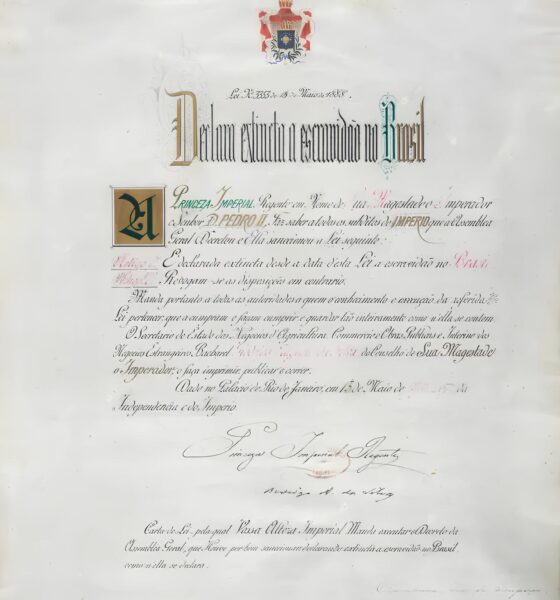 Lei N. 3353 de 13 de Maio de 1888.
Declara extincta a escravidão no Brasil
A PRINCEZA IMPERIAL Regente em Nome de Sua Magestade o Imperador
o Senhor D. PEDRO II, Faz saber a todos os subditos do IMPERIO que a Assembléa
Geral Decretou e Ella sanccionou a Lei seguinte:
Artigo 1º É declarada extincta desde a data desta Lei a escravidão no Brasil
Revogam-se as disposições em contrario.
Manda portanto a todas as autoridades a quem o conhecimento e execução da referida
Lei pertencer, que a cumpram e façam cumprir e guardar tão inteiramente como n'ella se contem.
O Secretario de Estado dos Negocios d'Agricultura, Commercio e Obras Publicas e Interino dos
Negocios Estrangeiros, Bacharel do Conselho de Sua Magestade
o Imperador, o faça imprimir, publicar e correr.
Dado no Palacio do Rio de Janeiro, em 13 de Maio de
Independencia e do Imperio
Princeza Imperial Regente
Rodrigo A. da Silva
Carta de Lei, pela qual Vossa Alteza Imperial Manda executar o Decreto da
Assembléa Geral, que Houve por bem sanccionar declarando extincta a escravidão no Brasil,
como n'ella se declara.